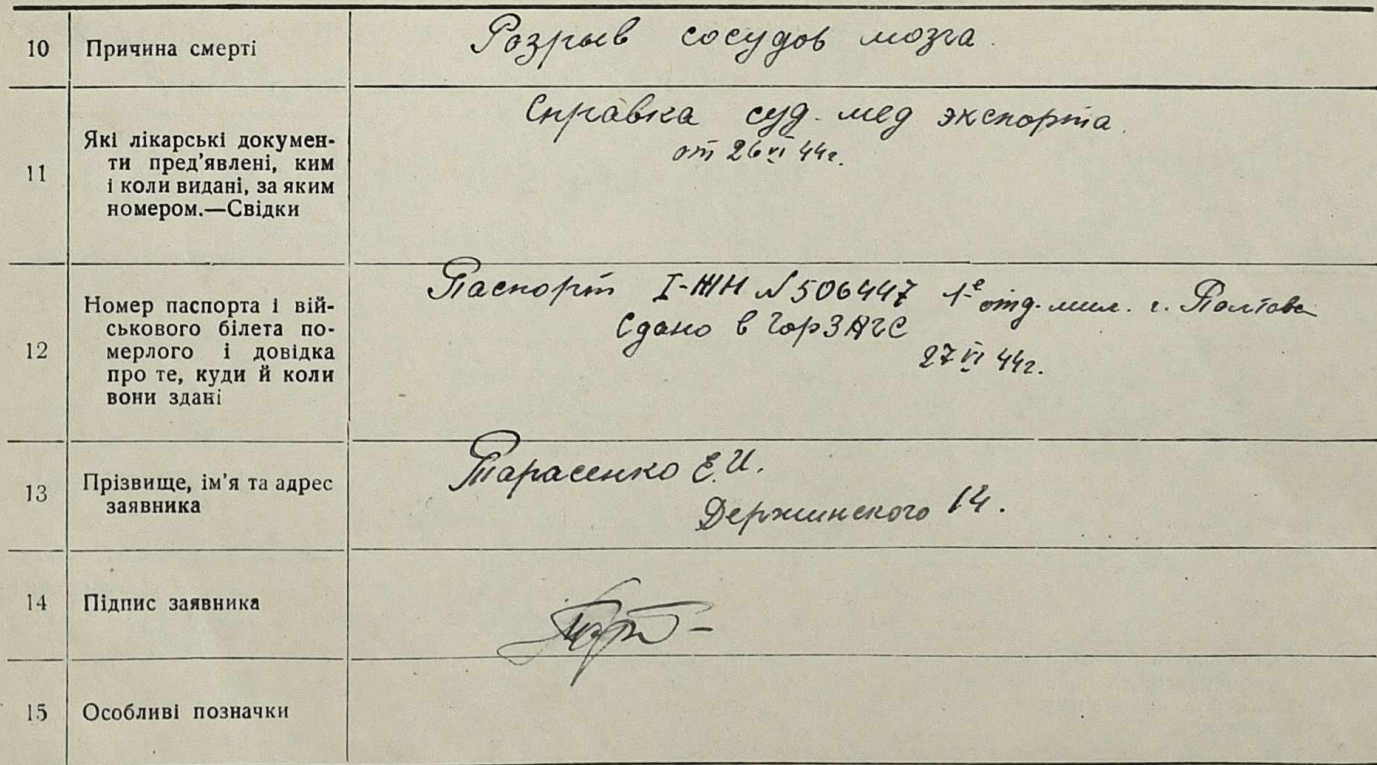 10 Причина смерті Розрыв сосудов мозга.
11 Які лікарські докумен-
ти пред'явлені, ким
і коли видані, за яким
номером.—Свідки
Справка суд-мед экспорта.
от 26 VI 44г.
12 Номер паспорта і вій-
ськового білета по-
мерлого і довідка
про те, куди й коли
вони здані
Паспорт I-ЖН №506447 1е отд. мил. г. Полтава
Сдано в ГорЗАГС
27 VI 44г.
13 Прізвище, ім'я та адрес
заявника
Тарасенко Е.И.
Держинского 14.
14 Підпис заявника
15 Особливі позначки